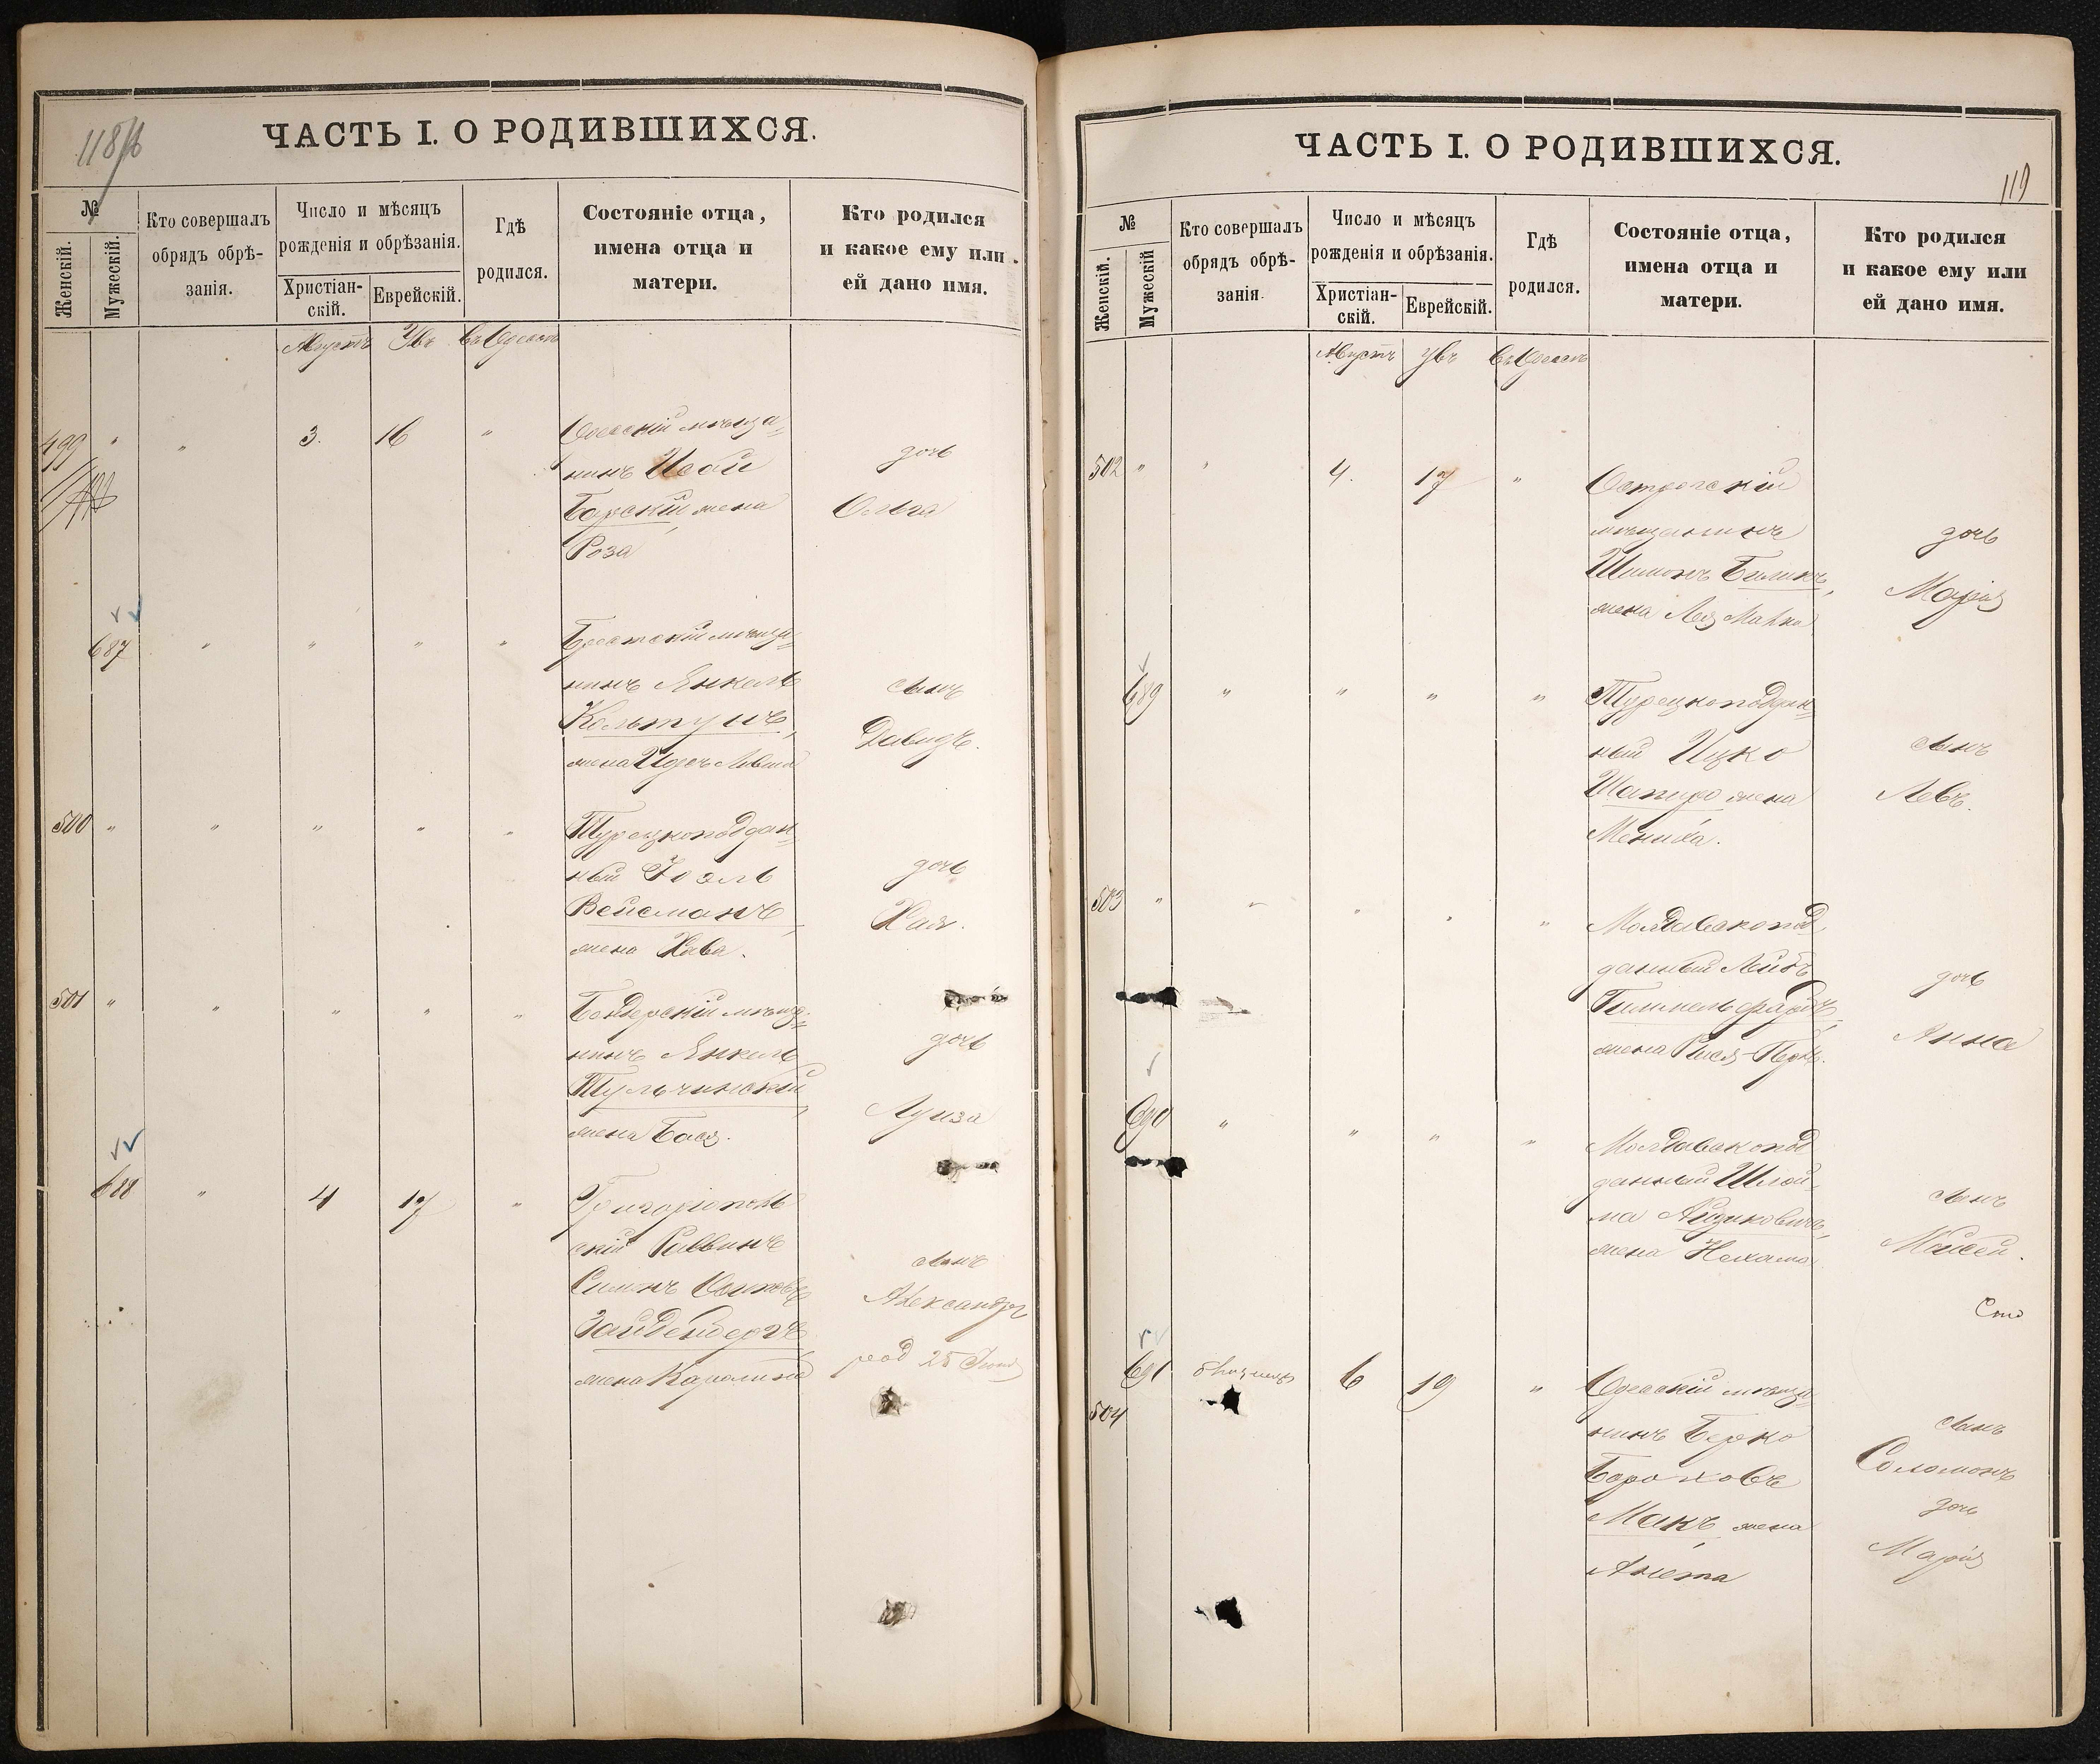 118/б
ЧАСТЬ I. О РОДИВШИХСЯ.
№
Женскій.
Мужескій.
Кто совершалъ
обрядъ обрѣ-
занія.
Число и мѣсяцъ
рожденія и обрѣзанія.
Христіан-
скій.
Еврейскій.
Гдѣ
родился.
Состояніе отца,
имена отца и
матери.
Кто родился
и какое ему или
ей дано имя.
Августъ
Въ Одессѣ
499 " " 3. 16 "
Одесскій мѣща=
нинъ
Борскій, жена
Роза
дочь
Ольга
687 " " " "
мѣща=
нинъ Янкель
Колтунъ,
жена
сынъ
Давидъ.
500 " " " " "
Турецкоподдан=
ный Іоэль
Вейсманъ,
жена Хава.
дочь
Хая.
501 " " " " "
Бендерскій мѣща=
нинъ Янкель
Тульчинскій,
жена Бася.
дочь
Луиза
688 " 4 17 "
Григоріополь
скій Раввинъ
Симонъ
Зайденбергъ,
жена Каролина
сынъ
Александръ
род 25
119
ЧАСТЬ I. О РОДИВШИХСЯ.
№
Женскій.
Мужескій
Кто совершалъ
обрядъ обрѣ-
занія.
Число и мѣсяцъ
рожденія и обрѣзанія.
Христіан-
скій.
Еврейскій.
Гдѣ
родился.
Состояніе отца,
имена отца и
матери.
Кто родился
и какое ему или
ей дано имя.
Августъ
Въ Одессѣ
502 " " 4. 17 "
Острогскій
мѣщанинъ
Шимонъ Биликъ,
жена Лея Малка
дочь
Марія
689 " " " "
Турецкоподдан=
ный Ицко
Шапиро жена
Мениха.
сынъ
Левъ.
503 " " " " "
Молдавскопод
данный Лейбъ
Гиммельфарбъ,
жена Рися-Перль.
дочь
Анна
690 " " " "
Молдавскопод
данный Шлой=
ма Айзиковичъ,
жена Нехама
сынъ
Мойсей.
691 6 19 "
504
Одесскій мѣща=
нинъ Берко
Бороховъ
Макъ, жена
Анета
сынъ
Соломонъ
дочь
Марія